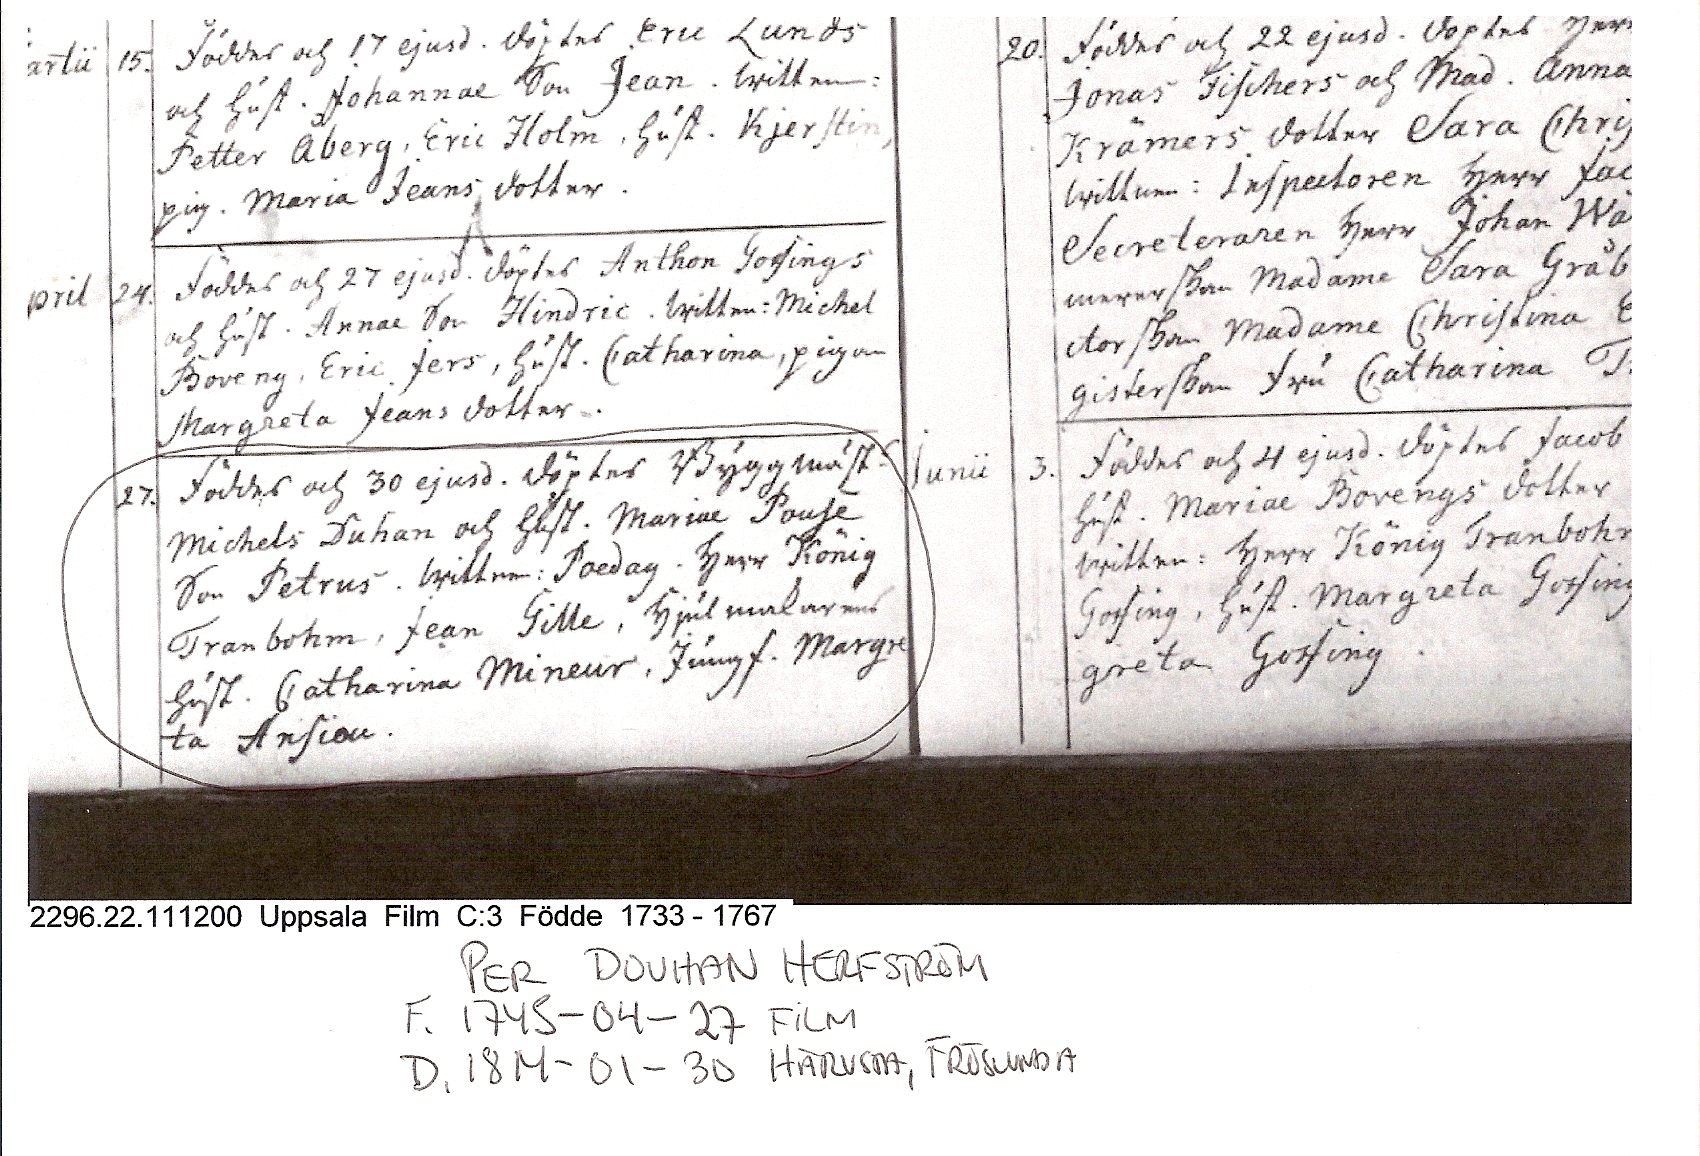 artii 15. Föddes och 17 ejusd. döptes Eric Lunds
och hust. Johannae Son Jean. Wittnen:
Petter Åberg, Eric Holm, hust. Kjerstin,
pig. Maria Jeans dotter.
pril 24. Föddes och 27 ejusd. döptes Anthon Gossings
och hust. Annae Son Hindric. Wittnen: Michel
Boveng, Eric Jers, hust. Catharina, pigan
Margreta Jeans dotter.
27. Föddes och 30 ejusd. döptes Byggmäst.
Michels Duhan och hust. Mariae Pouse
Son Petrus. Wittnen: Paedag. Herr König
Tranbohm, Jean Gille, Hjulmakarens
hust. Catharina Mineur, Jungf. Margre
ta Ansiou.
20. Föddes och 22 ejusd. döptes Herr
Jonas Fischers och Mad. Anna
Krämers dotter Sara Chris
Wittnen: Inspectoren Herr Jac
Secreteraren Herr Johan Wä
Madame Sara Gråb
ctorskan Madame Christina
gisterskan Fru Catharina T
Junii 3. Föddes och 4 ejusd. döptes Jacob
hust. Mariae Bovengs dotter
Wittnen: Herr König Tranbohm
Gossing, hust. Margreta Gossing
greta Gossing.
2296.22.111200 Uppsala Film C:3 Födde 1733 - 1767
PER DOUHAN HERFSTRÖM
F. 1745-04-27 FILM
D. 1811-01-30 HÄRUSTA, FRÖSLUNDA